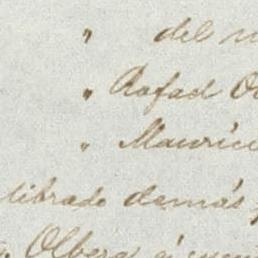 " del
" Rafael
" Mauric
librado demás
Olbera á